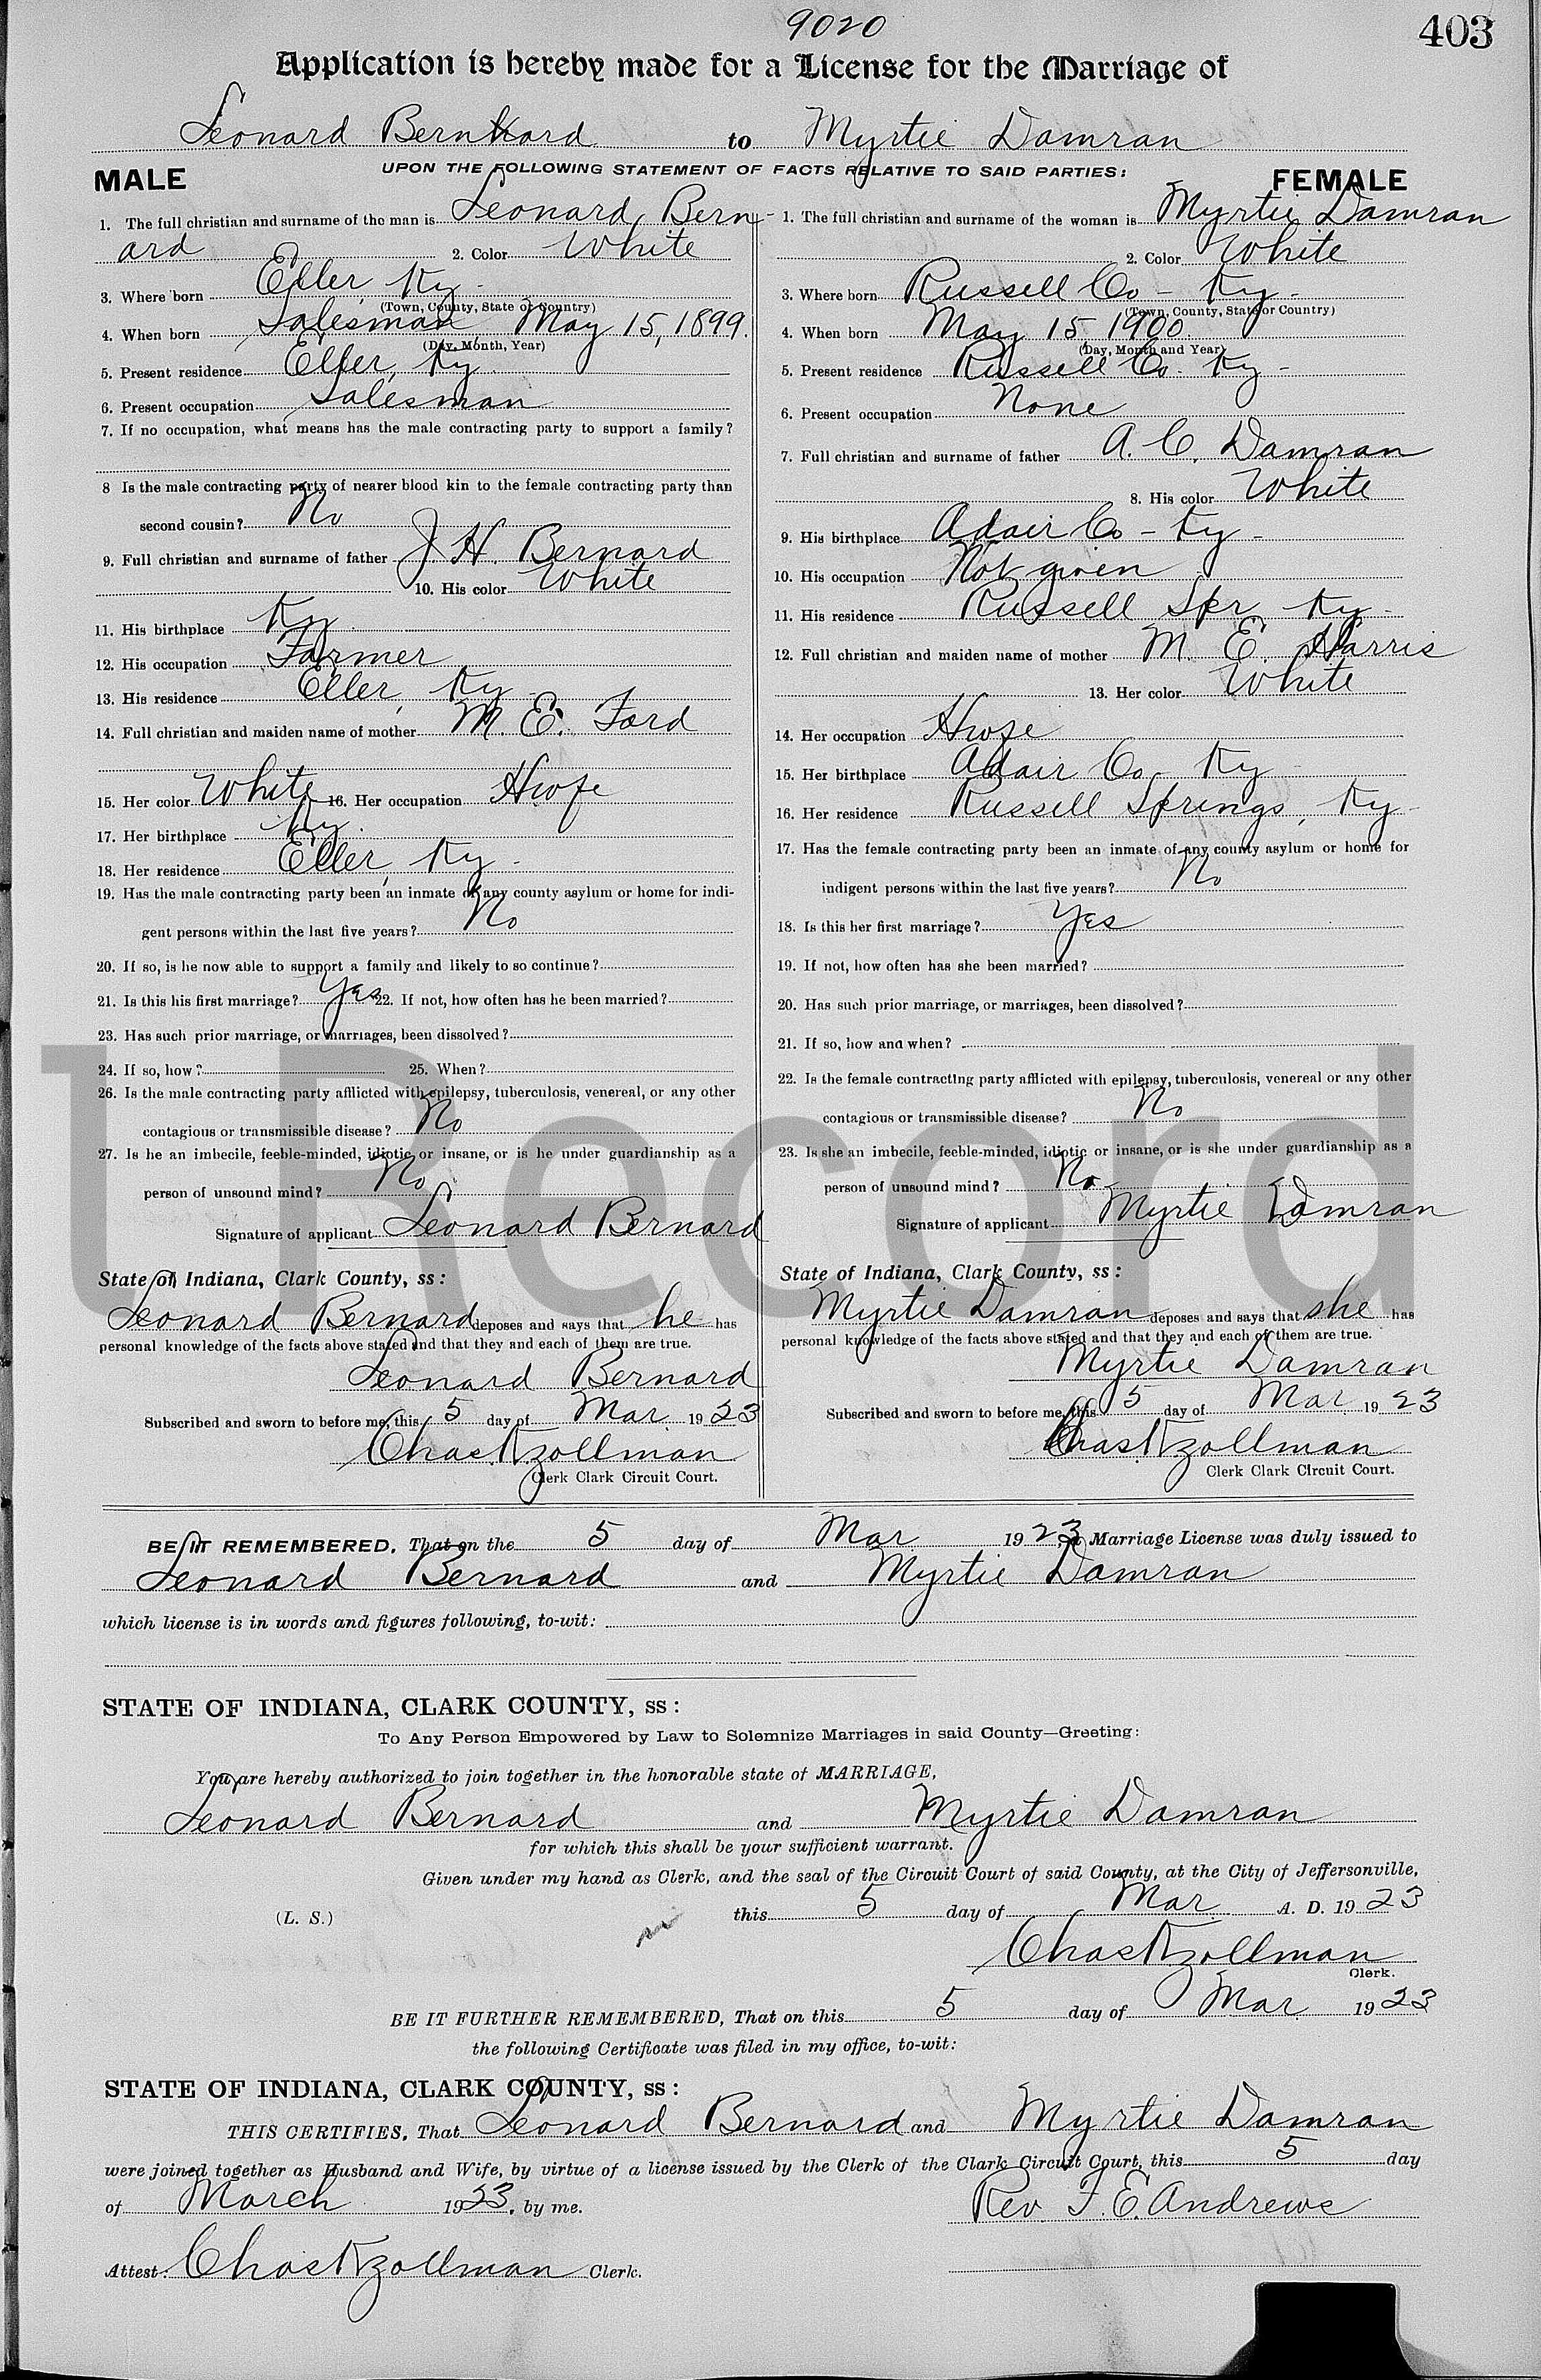 9020
403
Application is hereby made for a License for the Marriage of
Leonard Bernard to Myrtie Damran
UPON THE FOLLOWING STATEMENT OF FACTS RELATIVE TO SAID PARTIES:
MALE
1. The full christian and surname of the man is Leonard Bern-
ard 2. Color White
3. Where born Eller, Ky.
(Town, County, State or Country)
4. When born Salesman May 15, 1899.
(Day, Month, Year)
5. Present residence Eller, Ky.
6. Present occupation Salesman
7. If no occupation, what means has the male contracting party to support a family?
8 Is the male contracting party of nearer blood kin to the female contracting party than
second cousin? No
9. Full christian and surname of father J. H. Bernard
10. His color White
11. His birthplace Ky.
12. His occupation Farmer
13. His residence Eller, Ky
14. Full christian and maiden name of mother M. E. Ford
15. Her color White 16. Her occupation Hwfe
17. Her birthplace Ky.
18. Her residence Eller, Ky.
19. Has the male contracting party been an inmate of any county asylum or home for indi-
gent persons within the last five years? No
20. If so, is he now able to support a family and likely to so continue?
21. Is this his first marriage? Yes 22. If not, how often has he been married?
23. Has such prior marriage, or marriages, been dissolved?
24. If so, how? 25. When?
26. Is the male contracting party afflicted with epilepsy, tuberculosis, venereal, or any other
contagious or transmissible disease? No
27. Is he an imbecile, feeble-minded, idiotic or insane, or is he under guardianship as a
person of unsound mind? No
Signature of applicant Leonard Bernard
State of Indiana, Clark County, ss:
Leonard Bernard deposes and says that he has
personal knowledge of the facts above stated and that they and each of them are true.
Leonard Bernard
Subscribed and sworn to before me, this 5 day of Mar 1923
Chas K Zollman
Clerk Clark Circuit Court.
FEMALE
1. The full christian and surname of the woman is Myrtie Damran
2. Color White
3. Where born Russell Co - Ky -
(Town, County, State or Country)
4. When born May 15, 1900
(Day, Month and Year)
5. Present residence Russell Co. Ky -
6. Present occupation None
7. Full christian and surname of father A. C. Damran
8. His color White
9. His birthplace Adair Co - Ky -
10. His occupation Not given
11. His residence Russell Spr, Ky -
12. Full christian and maiden name of mother M. E. Harris
13. Her color White
14. Her occupation Hwfe
15. Her birthplace Adair Co - Ky
16. Her residence Russell Springs, Ky -
17. Has the female contracting party been an inmate of any county asylum or home for
indigent persons within the last five years? No
18. Is this her first marriage? Yes
19. If not, how often has she been married?
20. Has such prior marriage, or marriages, been dissolved?
21. If so, how and when?
22. Is the female contracting party afflicted with epilepsy, tuberculosis, venereal or any other
contagious or transmissible disease? No
23. Is she an imbecile, feeble-minded, idiotic or insane, or is she under guardianship as a
person of unsound mind? No
Signature of applicant Myrtie Damran
State of Indiana, Clark County, ss:
Myrtie Damran deposes and says that she has
personal knowledge of the facts above stated and that they and each of them are true.
Myrtie Damran
Subscribed and sworn to before me, this 5 day of Mar 1923
Chas K Zollman
Clerk Clark Circuit Court.
BE IT REMEMBERED, That on the 5 day of Mar 1923 a Marriage License was duly issued to
Leonard Bernard and Myrtie Damran
which license is in words and figures following, to-wit:
STATE OF INDIANA, CLARK COUNTY, ss:
To Any Person Empowered by Law to Solemnize Marriages in said County—Greeting:
You are hereby authorized to join together in the honorable state of MARRIAGE,
Leonard Bernard and Myrtie Damran
for which this shall be your sufficient warrant.
Given under my hand as Clerk, and the seal of the Circuit Court of said County, at the City of Jeffersonville,
(L. S.) this 5 day of Mar A. D. 1923
Chas K Zollman
Clerk.
BE IT FURTHER REMEMBERED, That on this 5 day of Mar 1923
the following Certificate was filed in my office, to-wit:
STATE OF INDIANA, CLARK COUNTY, ss:
THIS CERTIFIES, That Leonard Bernard and Myrtie Damran
were joined together as Husband and Wife, by virtue of a license issued by the Clerk of the Clark Circuit Court, this 5 day
of March 1923, by me. Rev. F. E. Andrews
Attest: Chas K Zollman Clerk.
Record